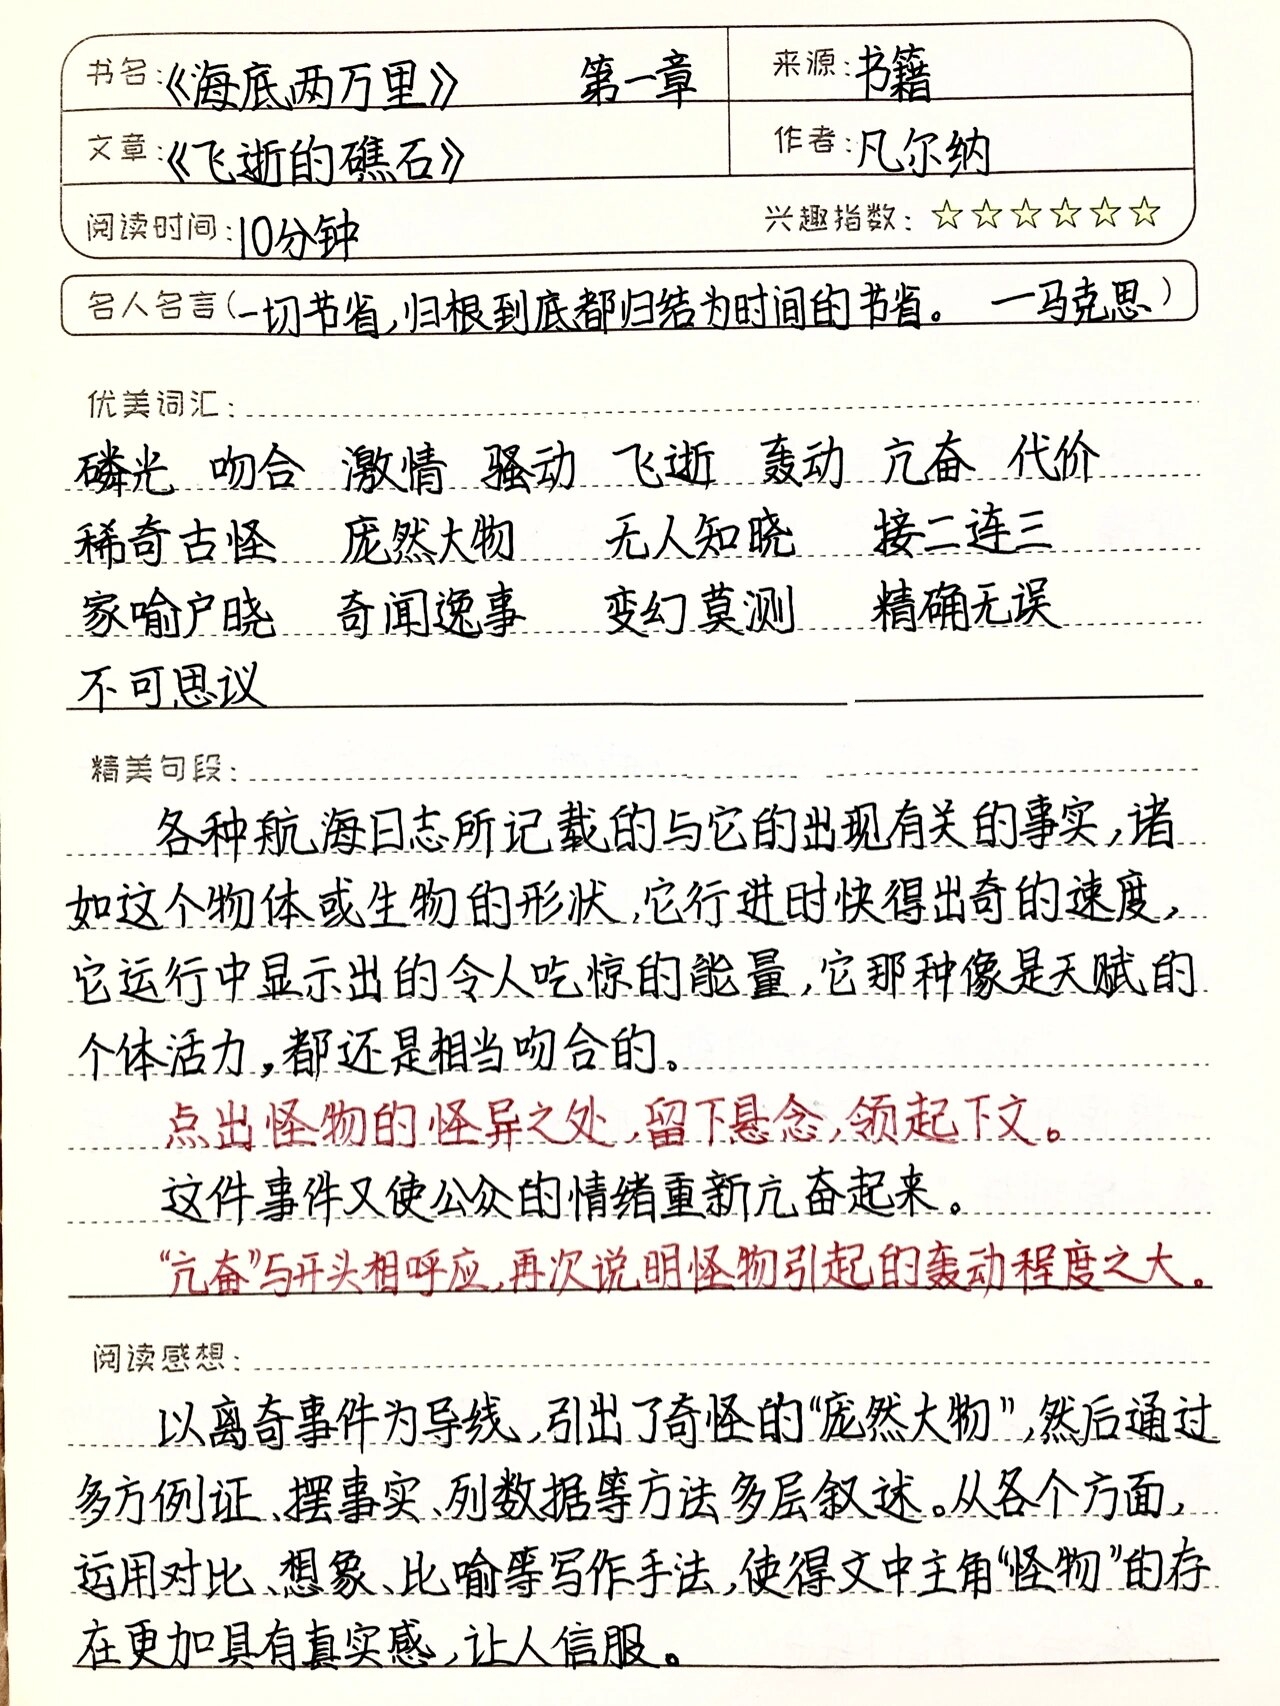 书名:《海底两万里》 第一章 来源:书籍
文章:《飞逝的礁石》 作者:凡尔纳
阅读时间:10分钟 兴趣指数:☆☆☆☆☆☆
名人名言(一切节省,归根到底都归结为时间的节省。 —马克思)
优美词汇:
磷光 吻合 激情 骚动 飞逝 轰动 亢奋 代价
稀奇古怪 庞然大物 无人知晓 接二连三
家喻户晓 奇闻逸事 变幻莫测 精确无误
不可思议
精美句段:
各种航海日志所记载的与它的出现有关的事实,诸
如这个物体或生物的形状,它行进时快得出奇的速度,
它运行中显示出的令人吃惊的能量,它那种像是天赋的
个体活力,都还是相当吻合的。
点出怪物的怪异之处,留下悬念,领起下文。
这件事件又使公众的情绪重新亢奋起来。
“亢奋”与开头相呼应,再次说明怪物引起的轰动程度之大。
阅读感想:
以离奇事件为导线,引出了奇怪的“庞然大物”,然后通过
多方例证、摆事实、列数据等方法多层叙述。从各个方面,
运用对比、想象、比喻等写作手法,使得文中主角“怪物”的存
在更加具有真实感,让人信服。